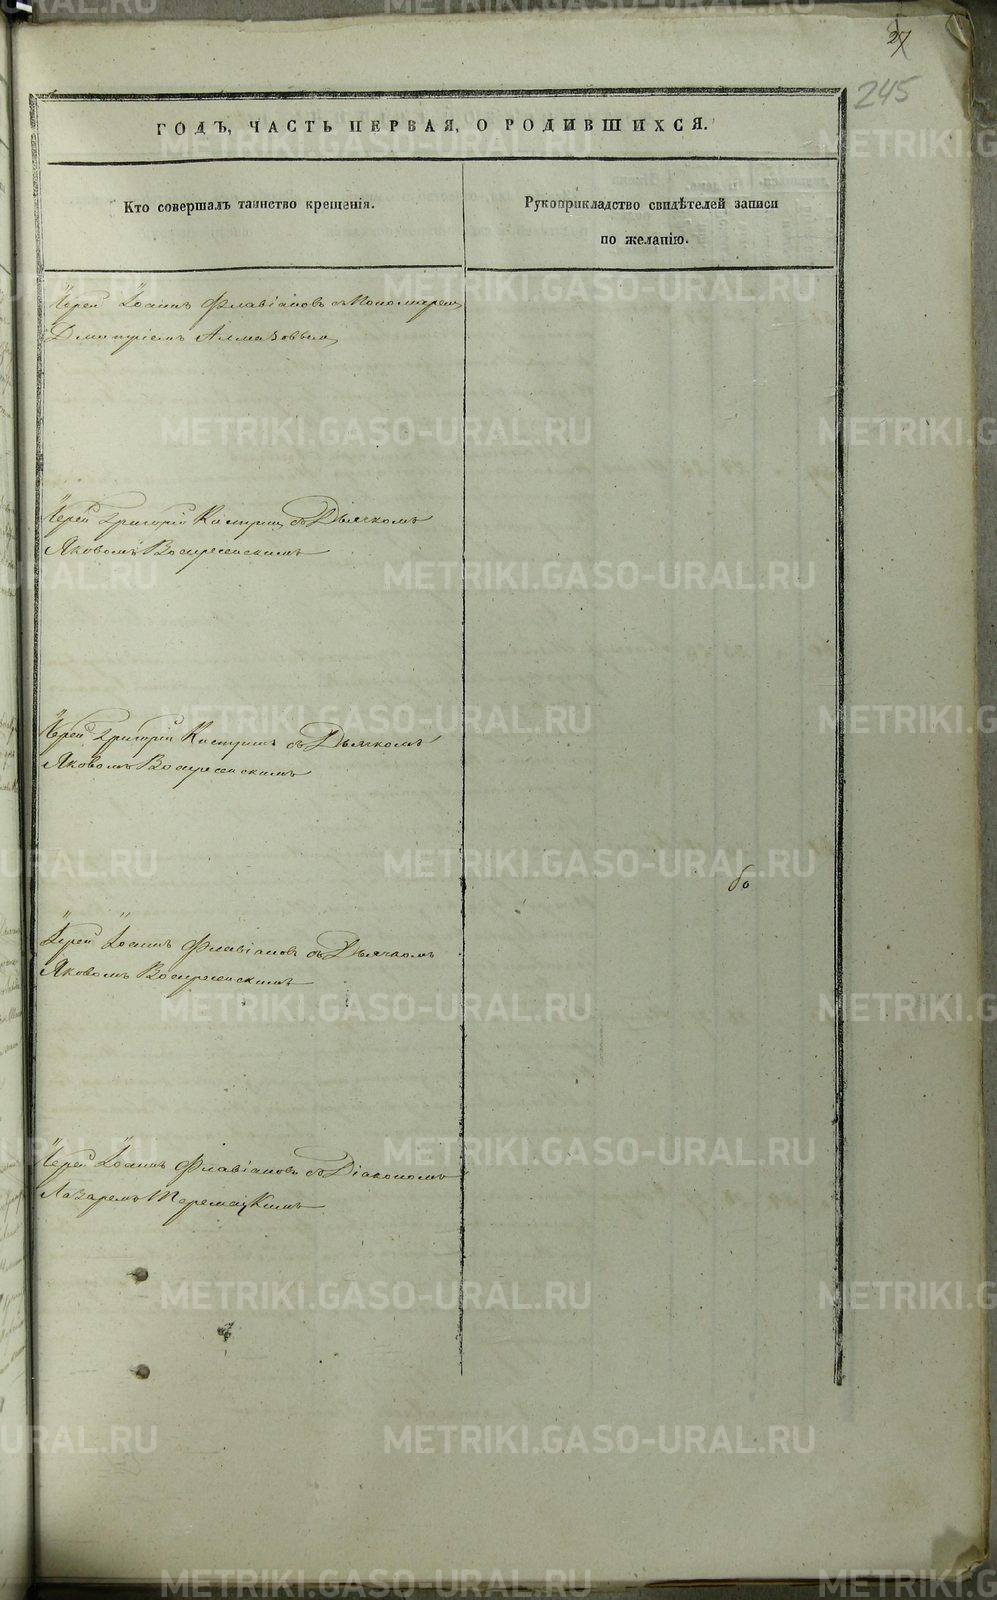 27
245
ГОДЪ, ЧАСТЬ ПЕРВАЯ, О РОДИВШИХСЯ.
Кто совершалъ таинство крещенія.
Рукоприкладство свидѣтелей записи
по желанію.
Іерей Іоаннъ Флавіановъ съ Пономаремъ
Дмитріемъ Алмазовымъ
Іерей Григорій Кастринъ съ Дьячкомъ
Яковомъ Воскресенскимъ
Іерей Григорій Кастринъ съ Дьячкомъ
Яковомъ Воскресенскимъ
бо
Іерей Іоаннъ Флавіановъ съ Дьячкомъ
Яковомъ Воскресенскимъ
Іерей Іоаннъ Флавіановъ съ Діакономъ
Лазаремъ Перемацкимъ
METRIKI.GASO-URAL.RU